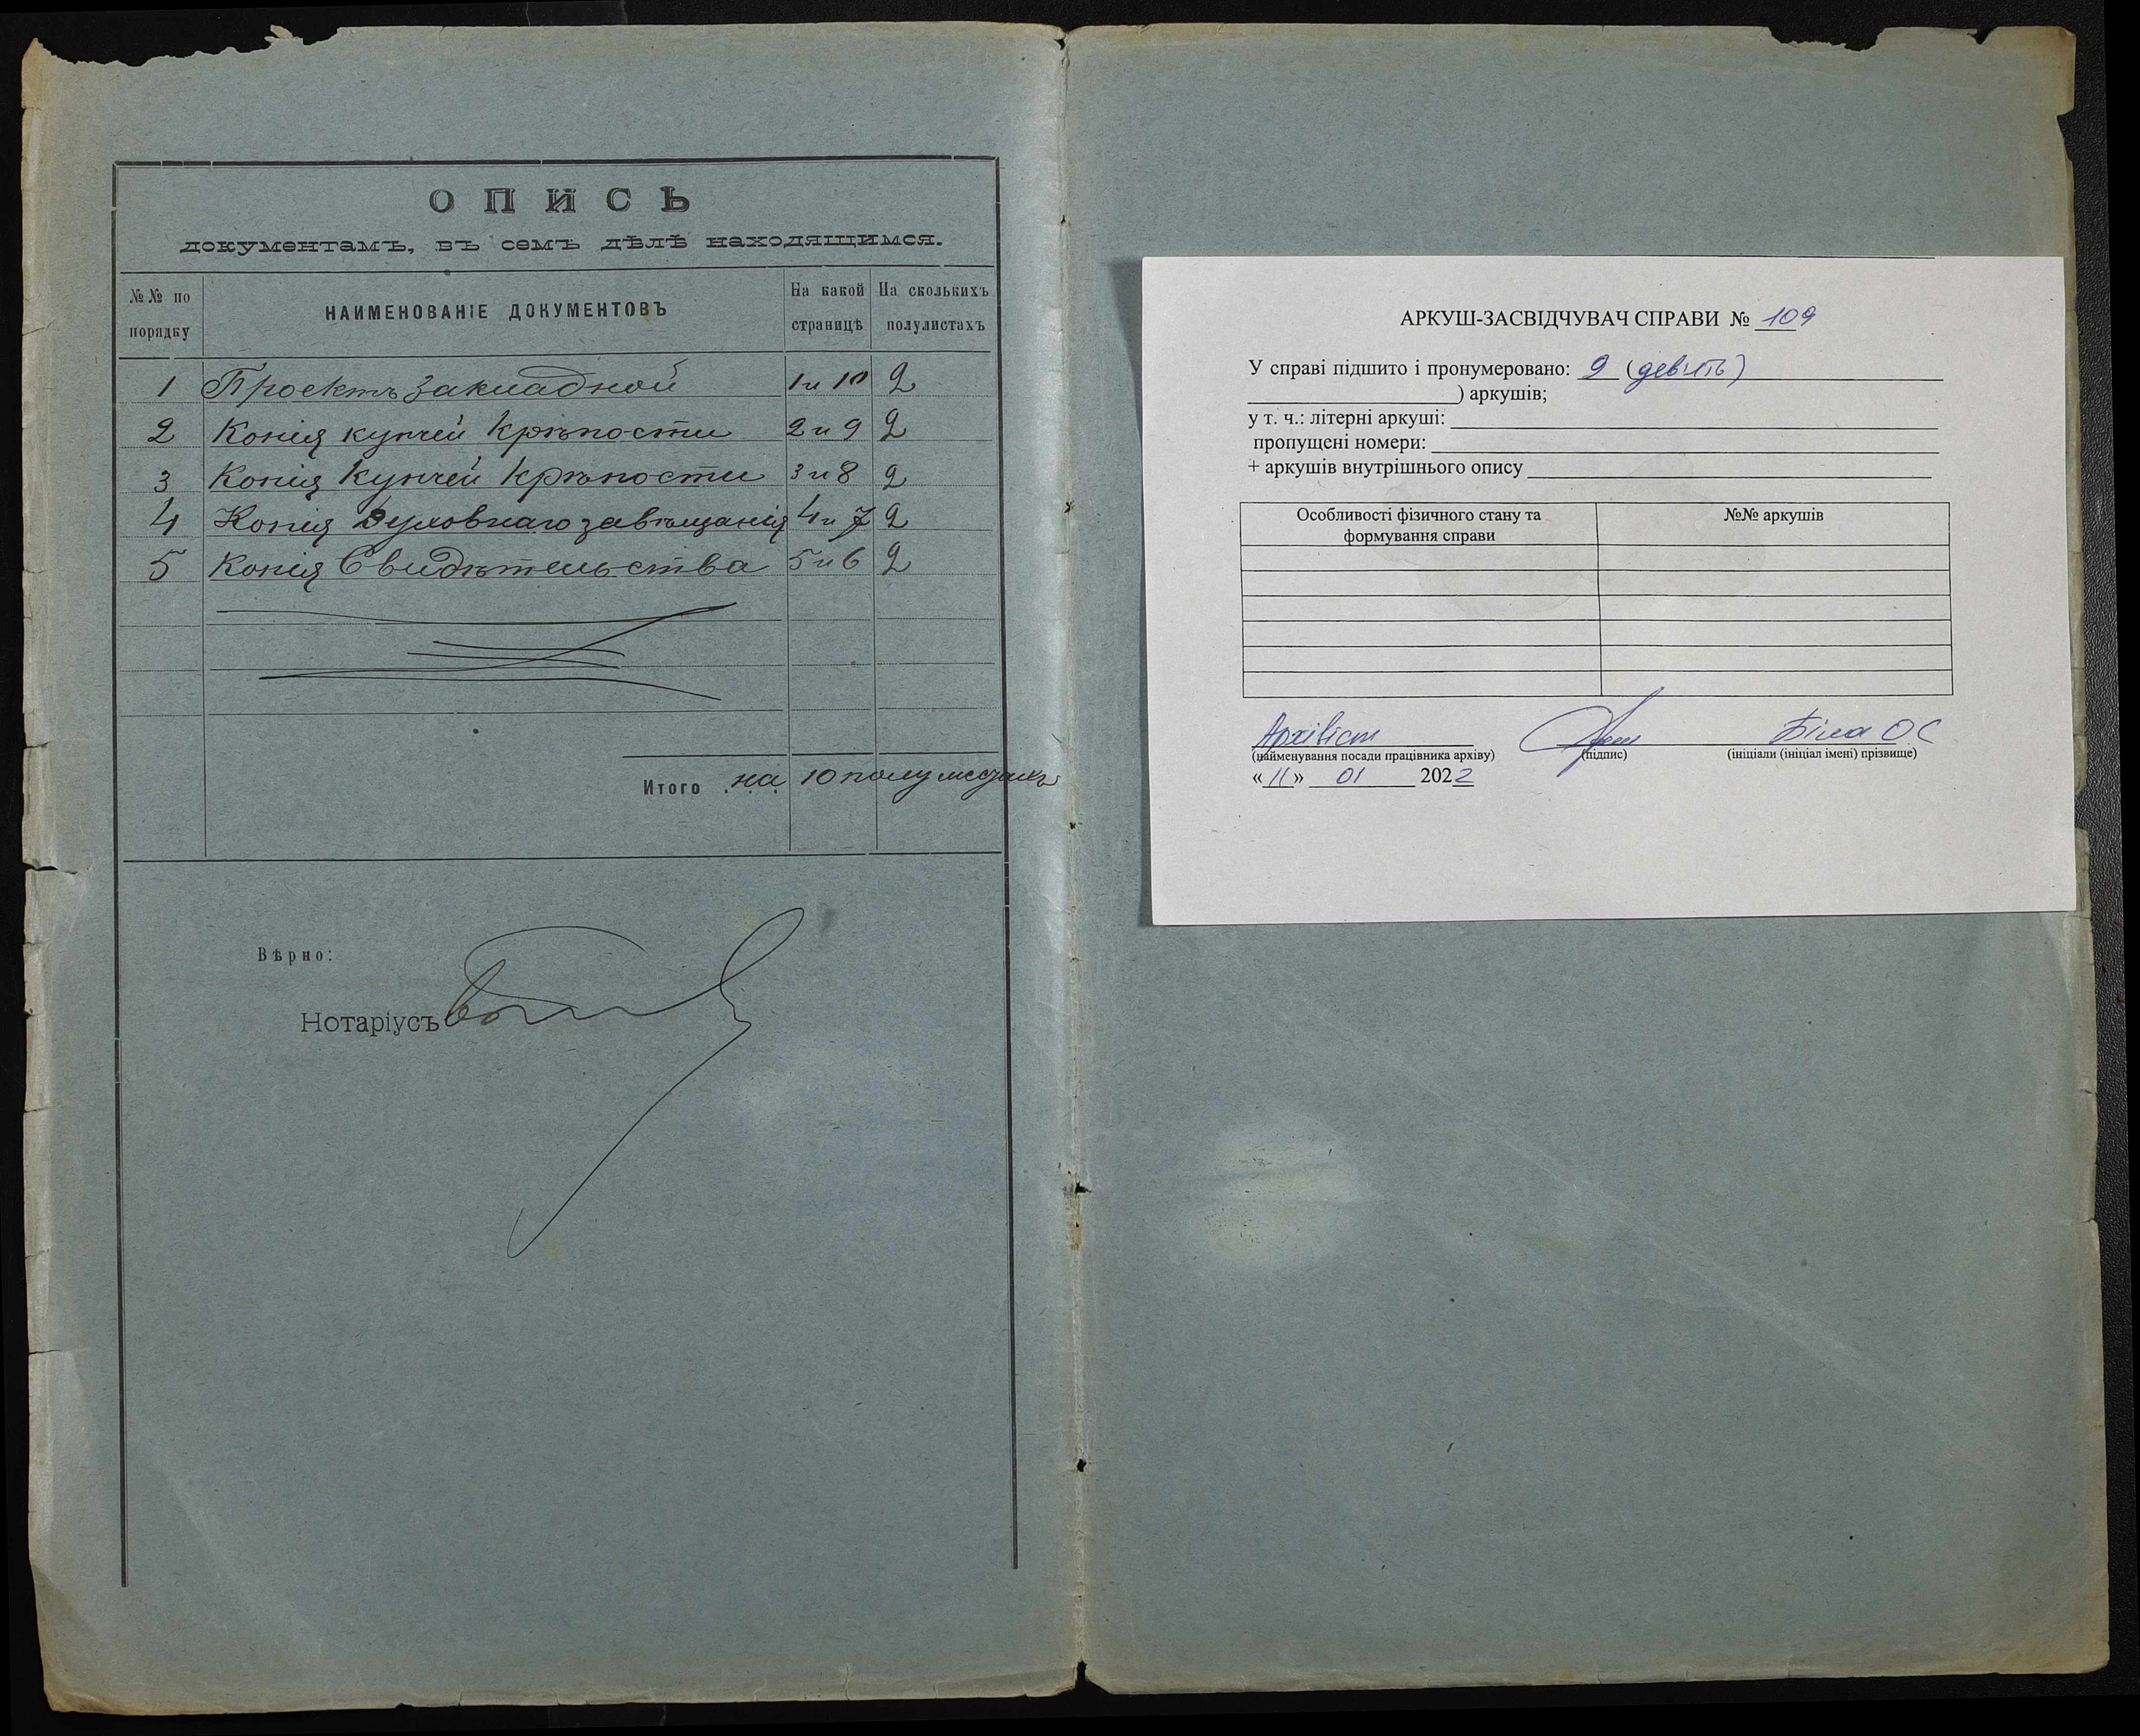 ОПИСЬ
документамъ, въ семъ дѣлѣ находящимся.
№№ по порядку
НАИМЕНОВАНІЕ ДОКУМЕНТОВЪ
На какой страницѣ
На сколькихъ полулистахъ
1 Проектъ закладной 1 и 10 2
2 Копія купчей крѣпости 2 и 9 2
3 Копія Купчей крѣпости 3 и 8 2
4 Копія Духовнаго завѣщанія 4 и 7 2
5 Копія Свидѣтельства 5 и 6 2
Итого . на 10 полулистахъ
Вѣрно:
Нотаріусъ
АРКУШ-ЗАСВІДЧУВАЧ СПРАВИ № 109
У справі підшито і пронумеровано: 9 (дев'ять)
) аркушів;
у т. ч.: літерні аркуші:
пропущені номери:
+ аркушів внутрішнього опису
Особливості фізичного стану та формування справи
№№ аркушів
Архівіст Біла ОС
(найменування посади працівника архіву) (підпис) (ініціали (ініціал імені) прізвище)
«11» 01 2022